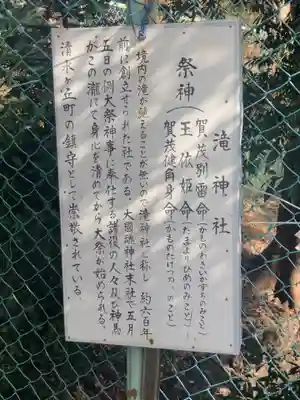 滝神社
祭神
賀茂別雷命(かものわきいかずちのみこと)
玉依姫命(たまよりひめのみこと)
賀茂健角身命(かものたけつのみのみこと)
境内の滝が絶えることが無いので滝神社と称し 約六百年
前に創立せられた社である。大國魂神社末社で五月
五日の例大祭神事に奉仕する諸役の人々及び神馬
がこの瀧にて身心を清めてから大祭が始められる。
清水ヶ丘町の鎮守として崇敬されている